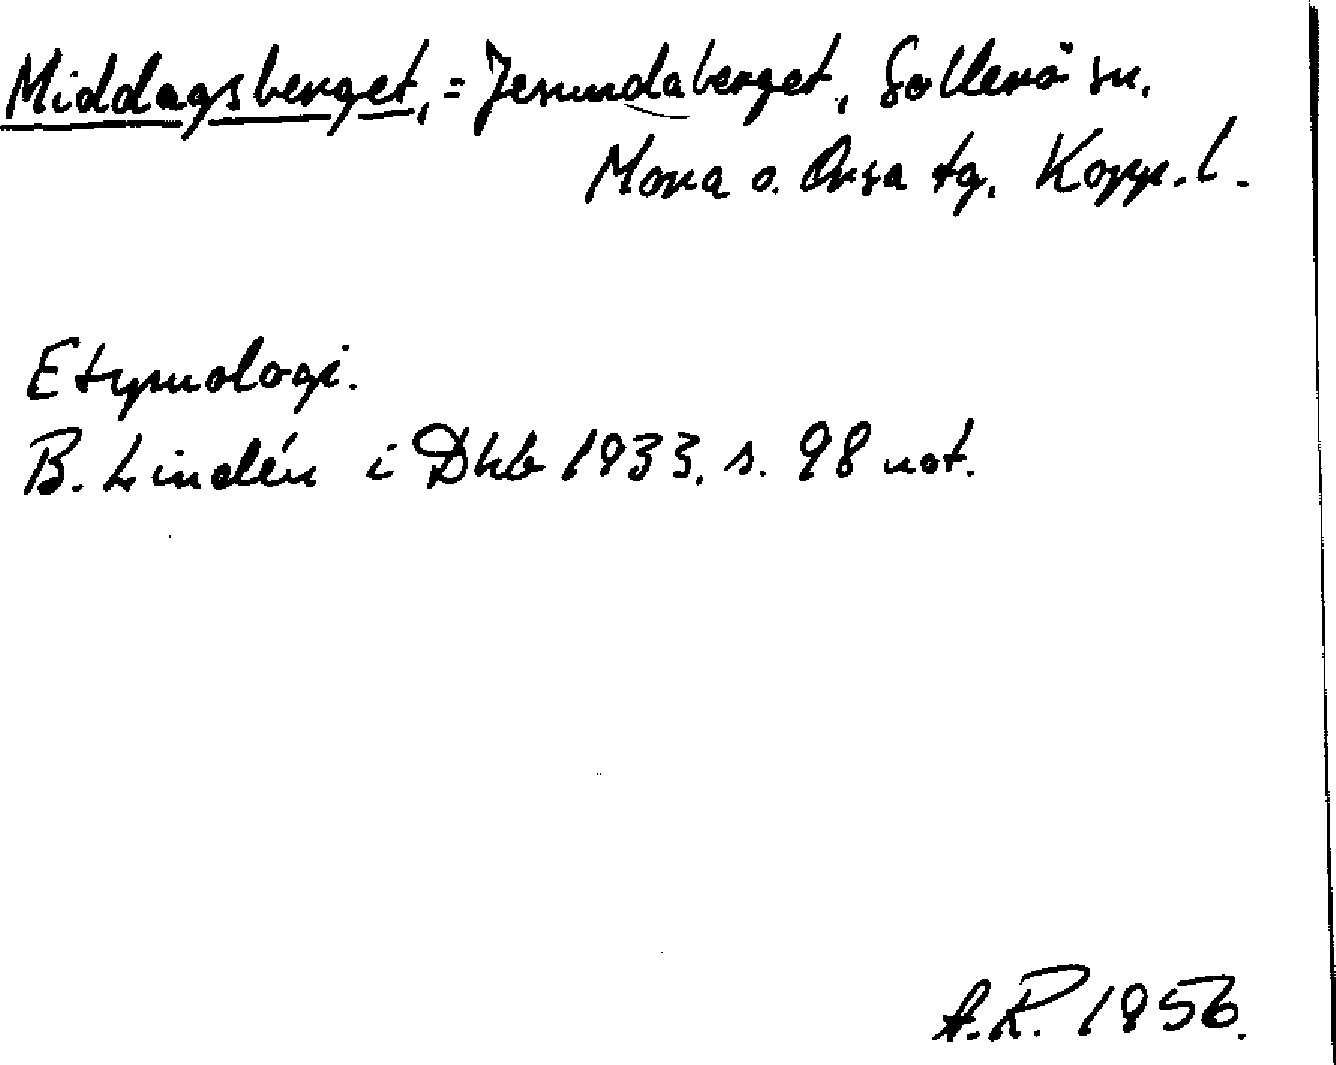 Middagsberget, = Jesundaberget, Sollerö sn.
Mora o. Orsa tg. Kopp. l.
Etymologi.
B. Lindén i Dhb 1933, s. 98 not.
A.R. 1956.